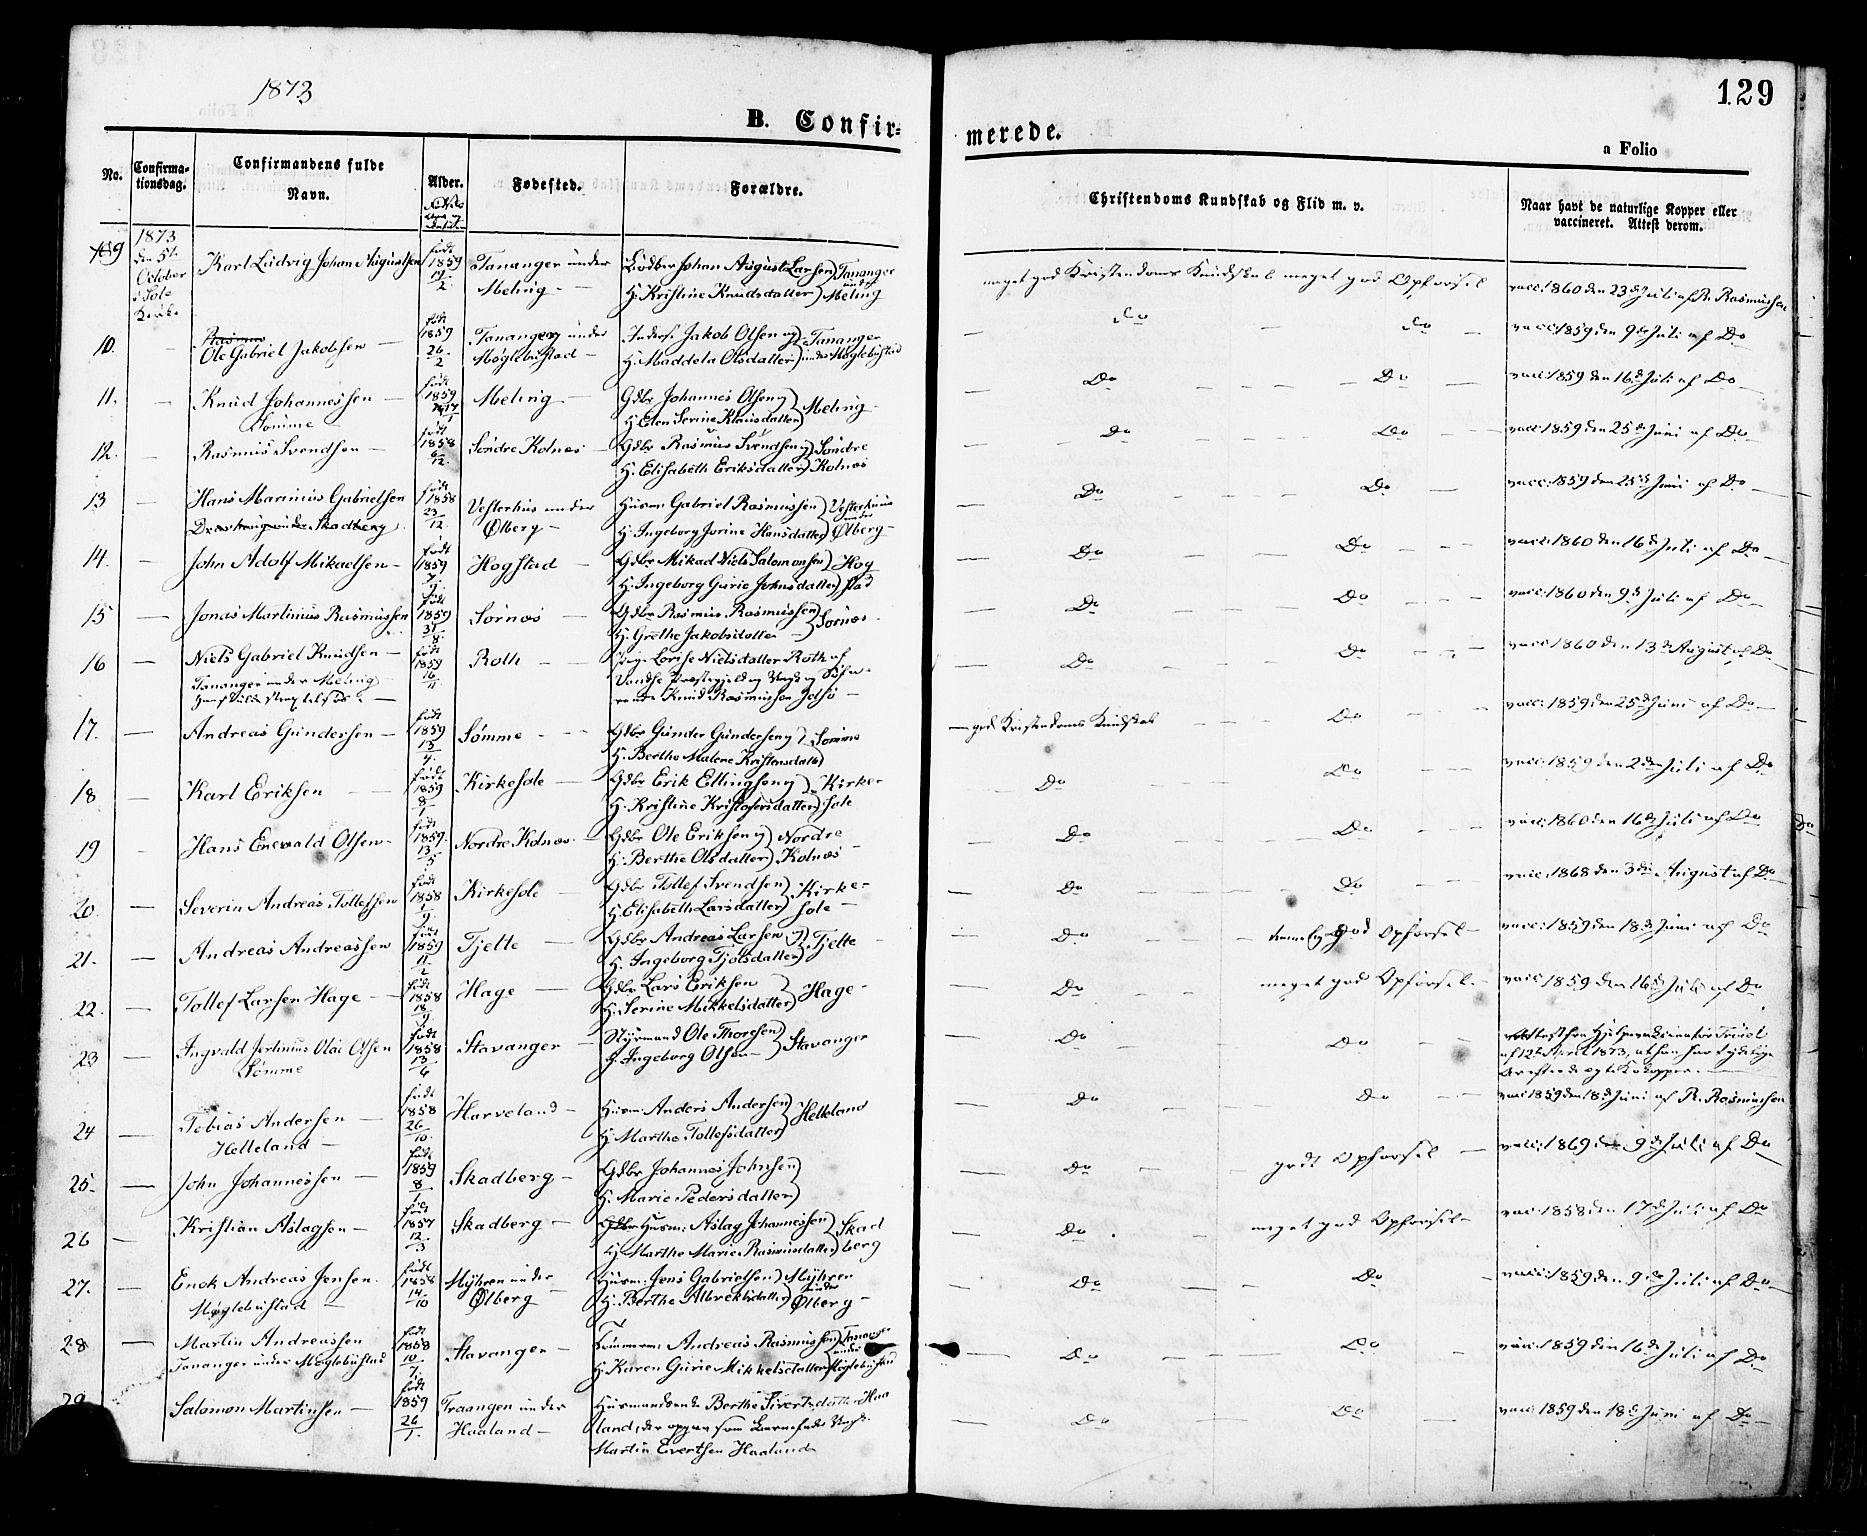 1873
129
B. Confir=
merede.
a Folio
No.
Confirma-
tionsdag.
Confirmandens fulde
Navn.
Alder.
Fødested.
Forældre.
Christendoms Kundskab og Flid m. v.
Naar havt de naturlige Kopper eller
vaccineret. Attest derom.
9 1873 den 5t. October i Sole Kirke Karl Ludvig Johan Augustsen født 1859 Tananger under Meling Johan August Larsen H. Kristine Knudsdatter Tananger under Meling meget god Kristendoms Kundskab meget god Opførsel vacc: 1860 den 23d Juli af R. Rasmussen
10. Ole Gabriel Jakobsen født 1859 26/2 Tananger under Møglebustad Jakob Olsen og H. Maddela Olsdatter Tananger under Møglebustad do do vacc: 1859 den 9de Juli af Do
11. Knud Johannessen Sømme født 1859 Meling Gdbr Johannes Olsen og H. Elen Serine Klausdatter Meling Do Do vacc: 1859 den 16d Juli af Do
12. Rasmus Svendsen født 1858 6/12 Søndre Kolnæs Gdbr Rasmus Svendsen og H. Elisabeth Eriksdatter Søndre Kolnæs Do Do vacc: 1859 den 25d Juni af Do
13 Hans Marinius Gabrielsen født 1858 23/12 Vesterhus under Ølberg Husm Gabriel Rasmussen H. Ingeborg Jorine Hansdatter Vesterhuus under Ølberg Do Do vacc: 1859 den 25d Juni af Do
14. John Adolf Mikaelsen født 1859 7/9 Hogstad Gdbr Mikael Niels Salomonsen H. Ingeborg Gurie Johnsdatter Hogstad Do Do vacc: 1860 den 16d Juli af Do
15 Jonas Martinius Rasmussen født 1859 31/8 Sørnæs Gdbr Rasmus Rasmussen H. Grethe Jakobsdatter Sørnæs Do Do vacc: 1860 den 9d Juli af Do
16 Niels Gabriel Knudsen Tananger under Meling født 1859 16/11 Roth Pige Lovise Nielsdatter Roth af Præstegjeld og Knud Rasmussen Do Do vacc: 1860 den 13d August af Do
17. Andreas Gundersen født 1859 15/4 Sømme Gdbr Gunder Gundersen og H. Berthe Malene Kristensdatter Sømme god Kristendoms Kundskab Do vacc: 1859 den 25d Juni af Do
18 Karl Eriksen født 1859 8/1 Kirkesole Gdbr Erik Ellingsen og H. Kristine Kristofersdatter Kirkesole Do Do vacc: 1859 den 2den Juli af Do
19 Hans Enevald Olsen født 1859 13/5 Nordre Kolnæs Gdbr Ole Eriksen og H. Berthe Olsdatter Nordre Kolnæs Do Do vacc: 1860 den 16d Juli af Do
20. Severin Andreas Tollefsen født 1858 1/9 Kirkesole Gdbr Tollef Svendsen H. Elisabeth Larsdatter Kirkesole Do Do vacc: 1868 den 3die August af Do
21. Andreas Andreassen født 1859 11/2 Tjelte Gdbr Andreas Larsen H. Ingeborg Tjølsdatter Tjelte Do god Opførsel vacc: 1859 den 18d Juni af Do
22. Tollef Larsen Hage født 1858 18/9 Hage Gdbr Lars Eriksen H. Serine Mikkelsdatter Hage Do meget god Opførsel vacc: 1859 den 16d Juli af Do
23 Ingvald Olai Olsen Sømme født 1858 13/6 Stavanger Styrmand Ole Thoresen H. Ingeborg Olsen Stavanger Do Do Attest fra Hjelpevaccinatør af 12te April 1873, at han har tydelige Ar efter de ægte Kokopper.
24 Tobias Andersen Helleland født 1858 26/10 Harveland Husm: Anders Andersen H. Marthe Tollefsdatter Helleland Do Do vacc 1859 den 18d Juni af R. Rasmussen
25. John Johannessen født 1859 8/1 Skadberg Gdbr Johannes Johnsen H. Marie Pedersdatter Do godt Opførsel vacc: 1869 den 9d Juli af Do
26 Kristian Aslagsen født 1857 12/3 Skadberg Husm: Aslag Johannessen H. Marthe Marie Rasmusdatter Skadberg Do meget god Opførsel vacc: 1858 den 17d Juli af Do
27. Enok Andreas Jensen Møglebustad født 1858 14/10 Myhren under Ølberg Husm: Jens Gabrielsen H. Berthe Albrektsdatter Myhren under Ølberg Do Do vacc: 1859 den 9de Juli af Do
28 Martin Andreassen Tananger under Møglebustad født 1858 10/7 Stavanger Andreas Rasmussen H. Karen Gurie Mikkelsdatter Tananger under Møglebustad Do Do vacc: 1859 den 16d Juli af Do
29 Salomon Martinsen født 1859 26/1 Traangen under Haaland Husmandsenke Berthe Sivertsdatter Haaland, der opgav som Barnefader Martin Evertsen Haaland Do Do vacc: 1859 den 18d Juni af Do